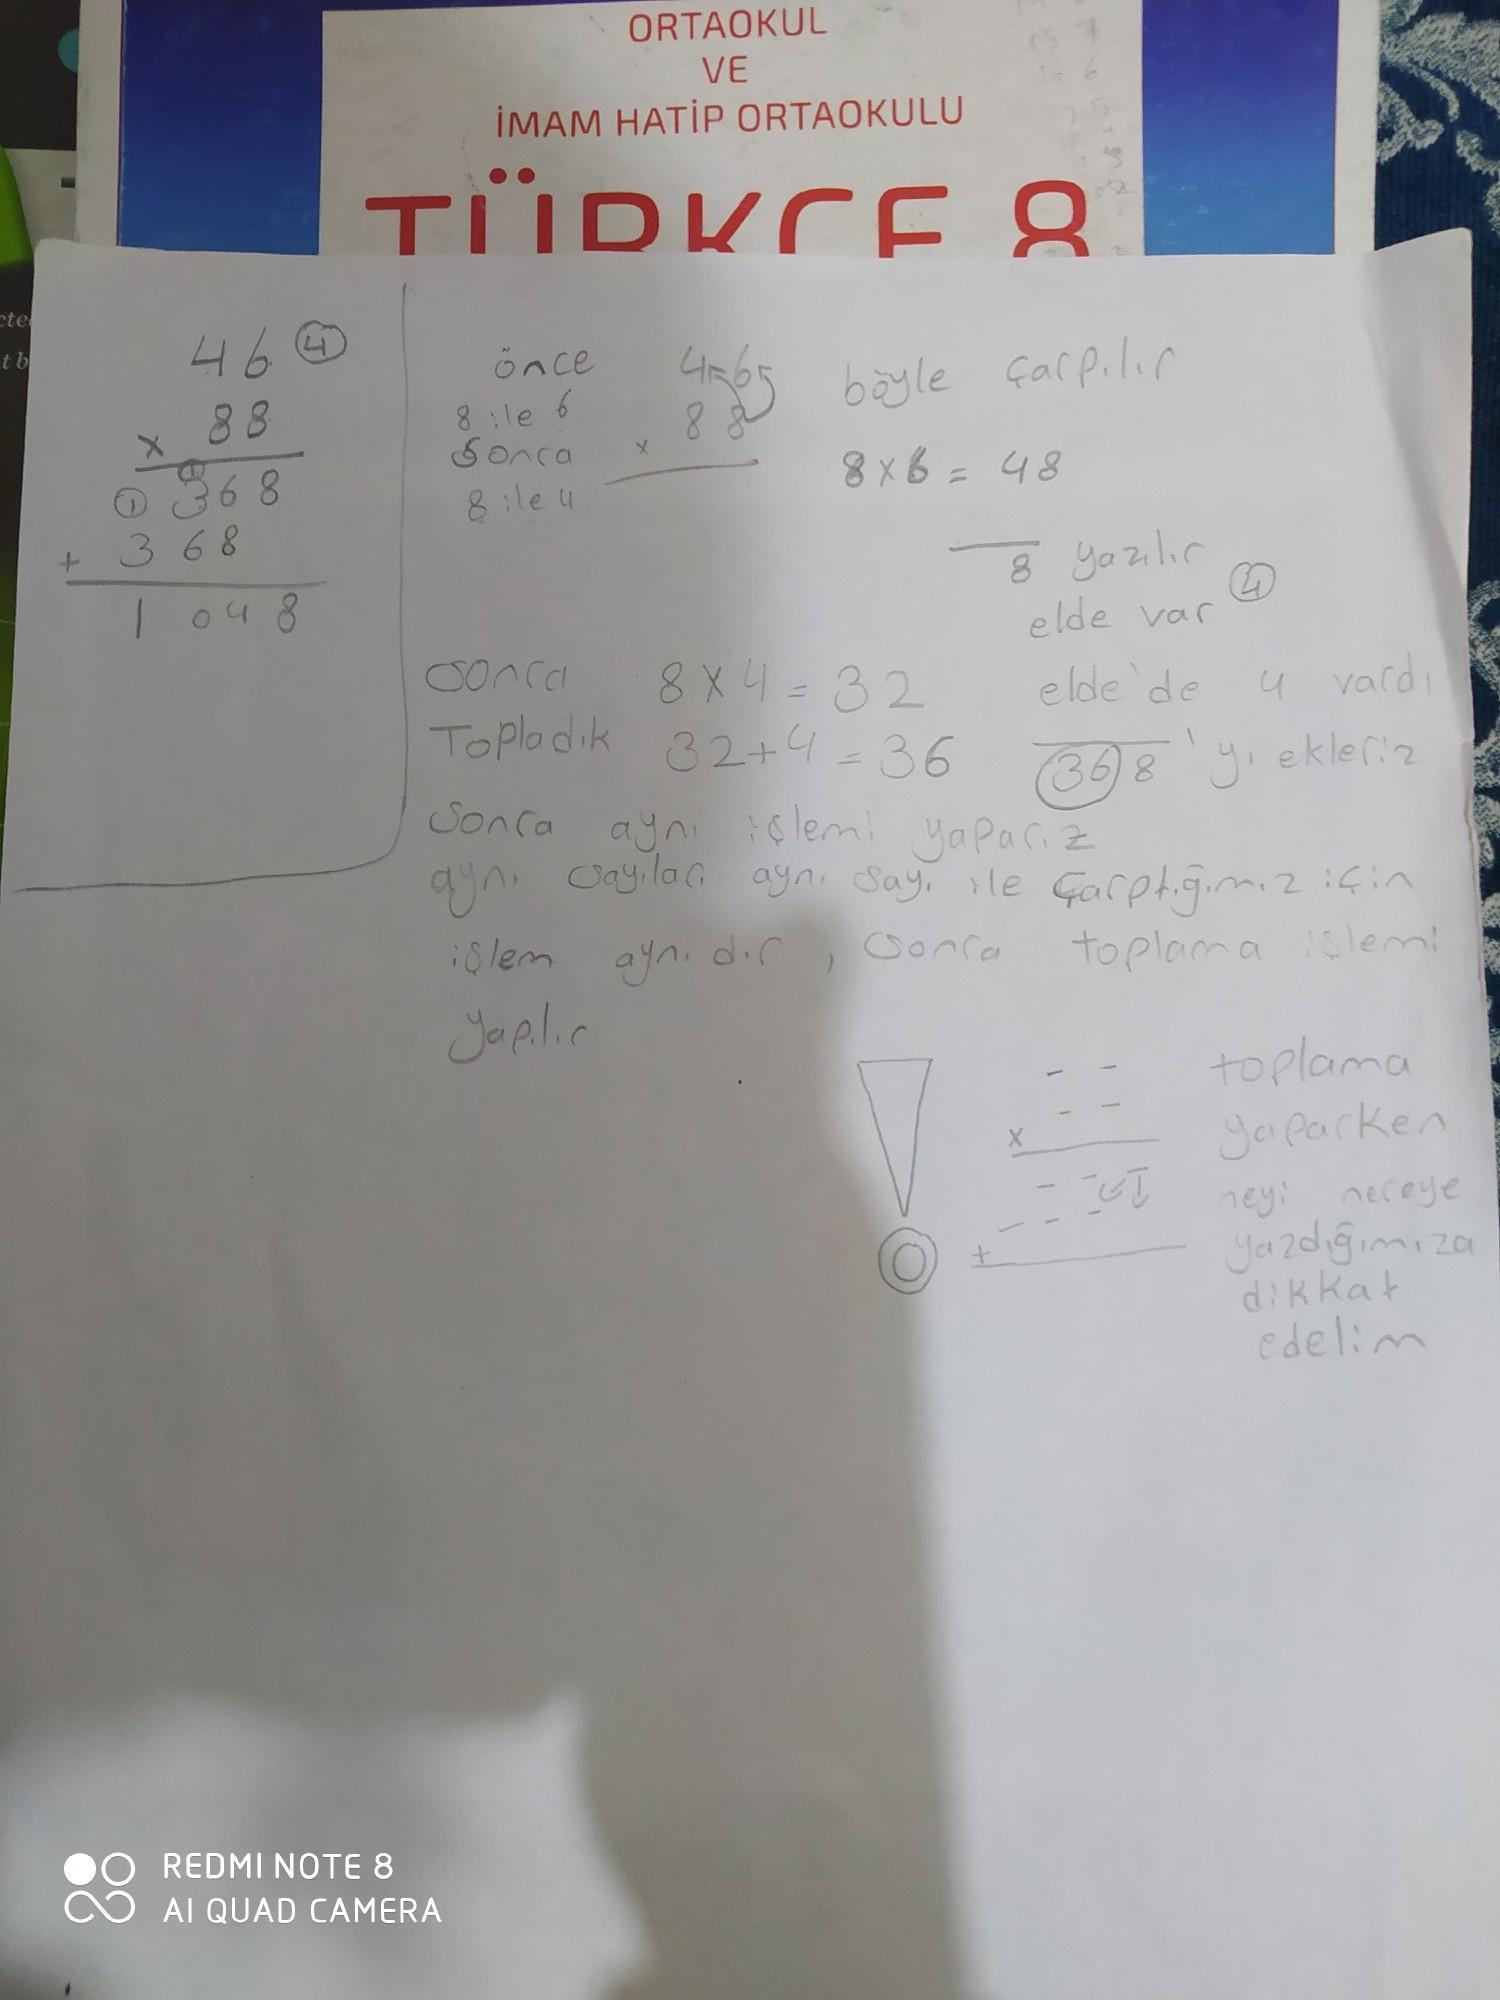 ORTAOKUL
VE
İMAM HATİP ORTAOKULU
TÜRKÇE 8
46 ④
88
x
① 368
+ 368
1 048
önce 46 böyle çarpılır
8 ile 6 88
sonra x
8 ile 4
8x6 = 48
8 yazılır
elde var ④
sonra 8x4 = 32 elde'de 4 vardı
Topladık 32+4 = 36 368 'yı ekleriz
sonra aynı işlemi yaparız
aynı sayıları aynı sayı ile çarptığımız için
işlem aynıdır, sonra toplama işlemi
yapılır
toplama
yaparken
neyi nereye
yazdığımıza
dikkat
edelim
x
+
REDMI NOTE 8
AI QUAD CAMERA